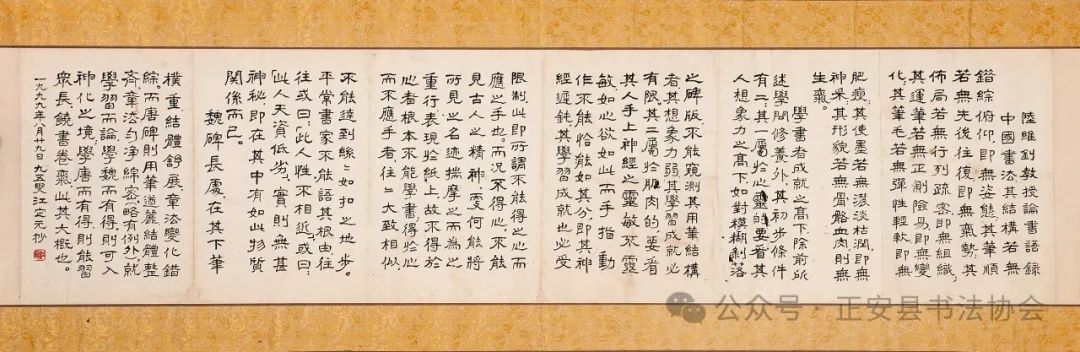 陸維釗教授論書語錄
中國書法其結構若無
錯綜俯仰即無姿態其筆順
若無先後往復即無氣勢其
佈局若無行列疏密即無組織
其運筆若無正側險易即無變
化其筆毛若無彈性輕軟即無
肥瘦其使墨若無濃淡枯潤即無
神采其形貌若無骨骼血肉則無
生氣。
學書者成就之高下除前所
述學問修養外其初步條件
有二其一屬於心靈的要看其
人想象力之高下如對模糊剝落
之碑版不能窺測其用筆結構
者其想象力弱其學習成就必
有限其二屬於肌肉的要看
其人手上神經之靈敏不靈
敏如心欲如此而手指動
作不能恰能如其分即其神
經遲鈍其學習成就也必受
限制此即所謂不能得之心而
應之手也而況不得心不而
見古人之精神何能將
所見之名迹揣摩之而為
重行表現於紙上故不得於
心者根本不能學書得於心
而不應手者往々大致相似
不能達到絲々如扣之地步。
平常書家不能語其根由往
往或曰此人性不相近或曰
此人天資低劣實則無甚
神秘即在其中有如此物質
關係而已。
魏碑長處在其下筆
樸重結體舒展章法變化錯
綜而唐碑則用筆遒麗結體整
齊章法勻淨綿密(略有例外)就
學習而論學魏而有得則可入
神化之境學唐而有得則能習
眾長饒書卷氣此其大概也。
一九九九年月廿九日九五叟江定元抄
公众号·正安县书法协会